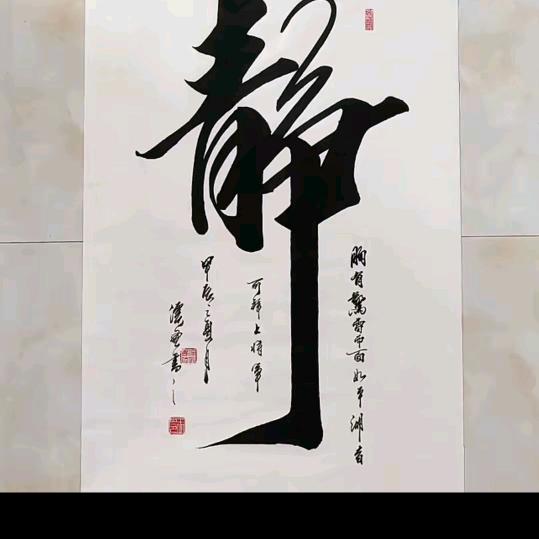 静
胸有驚雷而面如平湖者
可拜上将軍
甲辰之夏月
書